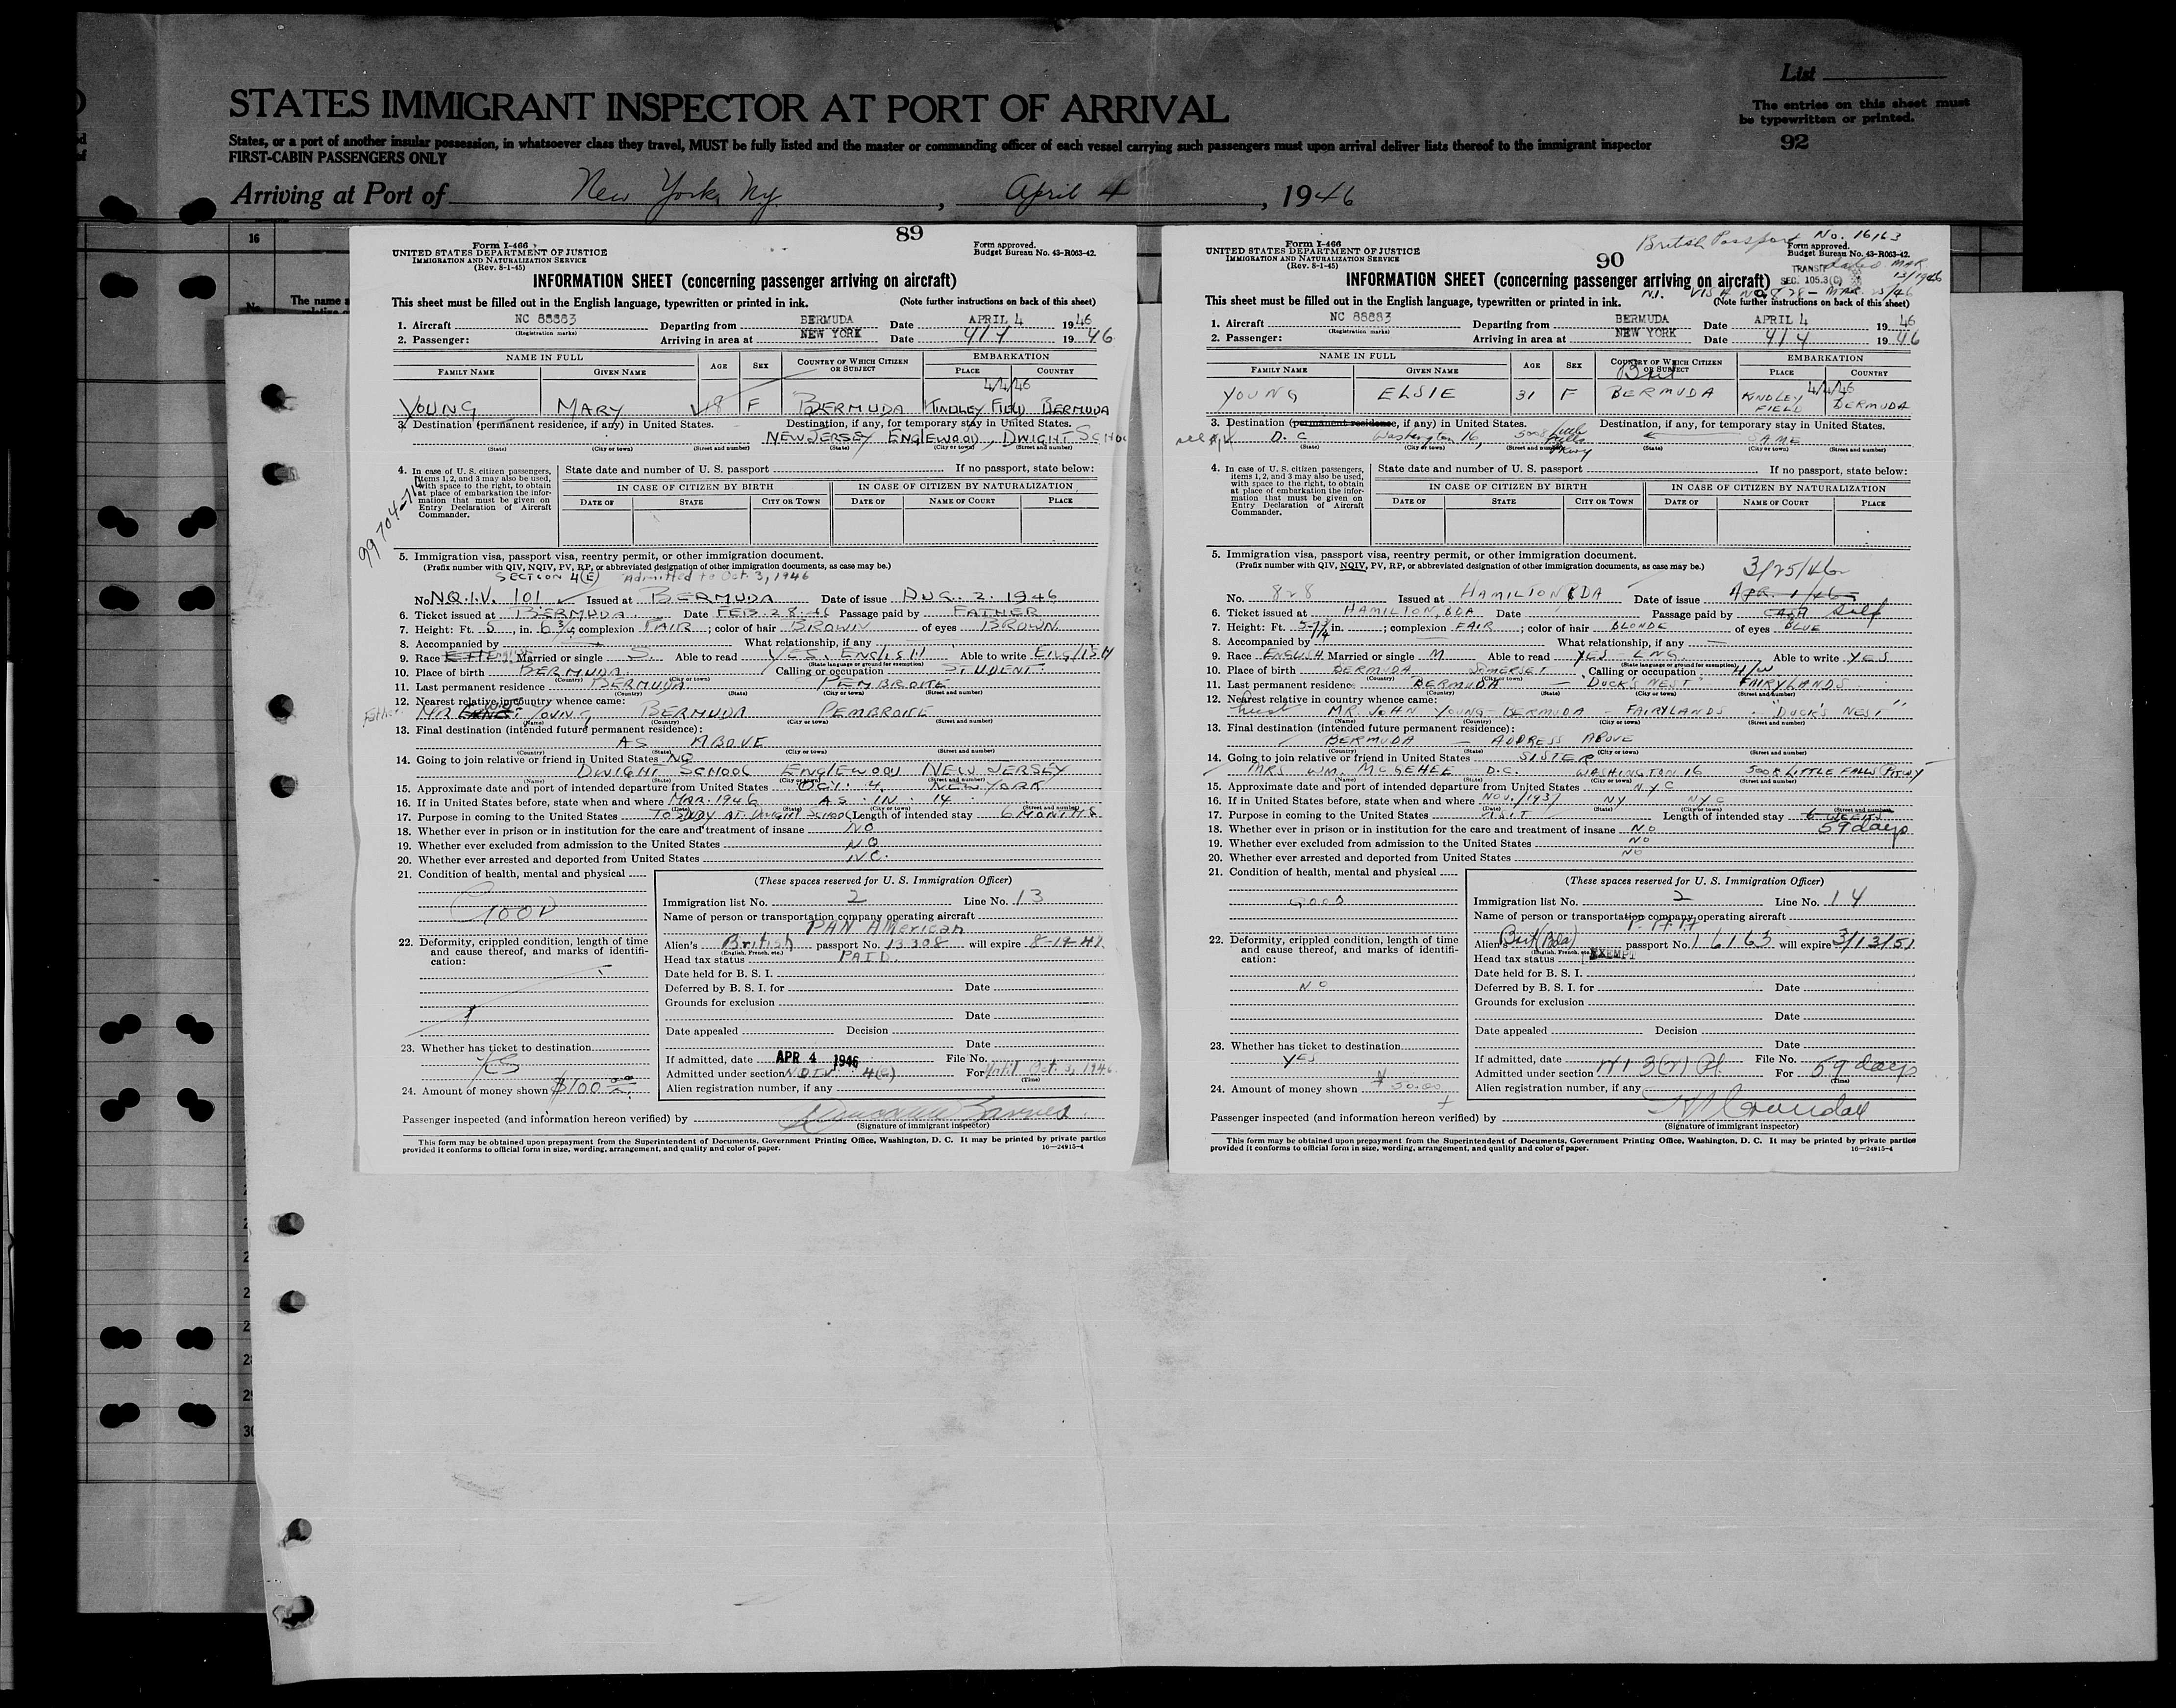 List
STATES IMMIGRANT INSPECTOR AT PORT OF ARRIVAL
The entries on this sheet must
be typewritten or printed.
States, or a port of another insular possession, in whatsoever class they travel, MUST be fully listed and the master or commanding officer of each vessel carrying such passengers must upon arrival deliver lists thereof to the immigrant inspector
FIRST-CABIN PASSENGERS ONLY
92
Arriving at Port of New York, Ny. , April 4 , 1946
16
The name a
89
Form I-466
UNITED STATES DEPARTMENT OF JUSTICE
IMMIGRATION AND NATURALIZATION SERVICE
(Rev. 8-1-45)
Form approved.
Budget Bureau No. 43-R063-42.
INFORMATION SHEET (concerning passenger arriving on aircraft)
This sheet must be filled out in the English language, typewritten or printed in ink. (Note further instructions on back of this sheet)
1. Aircraft NC 88883 Departing from BERMUDA Date APRIL 4 1946
(Registration marks)
2. Passenger: Arriving in area at NEW YORK Date 4/4 1946
NAME IN FULL AGE SEX COUNTRY OF WHICH CITIZEN OR SUBJECT EMBARKATION
FAMILY NAME GIVEN NAME PLACE COUNTRY
4/4/46
YOUNG MARY 18 F BERMUDA KINDLEY FIELD BERMUDA
3. Destination (permanent residence, if any) in United States. Destination, if any, for temporary stay in United States.
NEW JERSEY ENGLEWOOD, DWIGHT SCHO
(State) (City or town) (Street and number) (State) (City or town) (Street and number)
4. In case of U. S. citizen passengers, items 1, 2, and 3 may also be used, with space to the right, to obtain at place of embarkation the information that must be given on Entry Declaration of Aircraft Commander.
State date and number of U. S. passport If no passport, state below:
IN CASE OF CITIZEN BY BIRTH IN CASE OF CITIZEN BY NATURALIZATION
DATE OF STATE CITY OR TOWN DATE OF NAME OF COURT PLACE
5. Immigration visa, passport visa, reentry permit, or other immigration document.
(Prefix number with QIV, NQIV, PV, RP, or abbreviated designation of other immigration documents, as case may be.)
SECTION 4(E) Admitted to Oct. 3, 1946
No. N.Q.I.V. 101 Issued at BERMUDA Date of issue AUG. 2. 1946
6. Ticket issued at BERMUDA Date FEB. 28. 46 Passage paid by FATHER
7. Height: Ft. 5, in. 6 3/4; complexion FAIR; color of hair BROWN of eyes BROWN
8. Accompanied by What relationship, if any
9. Race English Married or single S. Able to read YES. ENGLISH Able to write ENGLISH
(State language or ground for exemption)
10. Place of birth BERMUDA Calling or occupation STUDENT
(Country) (City or town)
11. Last permanent residence BERMUDA PEMBROKE
(Country) (State) (City or town) (Street and number)
12. Nearest relative in country whence came:
Father MR YOUNG BERMUDA PEMBROKE
(Name) (Country) (City or town) (Street and number)
13. Final destination (intended future permanent residence):
AS ABOVE
(Country) (State) (City or town) (Street and number)
14. Going to join relative or friend in United States NO
DWIGHT SCHOOL ENGLEWOOD NEW JERSEY
(Name) (State) (City or town) (Street and number)
15. Approximate date and port of intended departure from United States OCT. 4. NEW YORK
16. If in United States before, state when and where MAR. 1946 AS IN 14
(Date) (State) (City or town) (Street and number)
17. Purpose in coming to the United States TO STUDY AT DWIGHT SCHOOL Length of intended stay 6 MONTHS
18. Whether ever in prison or in institution for the care and treatment of insane NO
19. Whether ever excluded from admission to the United States NO
20. Whether ever arrested and deported from United States NO.
21. Condition of health, mental and physical
GOOD
22. Deformity, crippled condition, length of time and cause thereof, and marks of identification:
23. Whether has ticket to destination
YES
24. Amount of money shown $100
(These spaces reserved for U. S. Immigration Officer)
Immigration list No. 2 Line No. 13
Name of person or transportation company operating aircraft
PAN AMERICAN
Alien's British passport No. 13308 will expire
(English, French, etc.)
Head tax status PAID.
Date held for B. S. I.
Deferred by B. S. I. for Date
Grounds for exclusion
Date
Date appealed Decision
Date
If admitted, date APR 4 1946 File No.
Admitted under section 4(E) For Until Oct. 3, 1946
(Time)
Alien registration number, if any
Passenger inspected (and information hereon verified) by
(Signature of immigrant inspector)
This form may be obtained upon prepayment from the Superintendent of Documents, Government Printing Office, Washington, D. C. It may be printed by private parties
provided it conforms to official form in size, wording, arrangement, and quality and color of paper. 16—24915-4
90
British Passport No. 16163
dated MAR 13/1946
Form I-466
UNITED STATES DEPARTMENT OF JUSTICE
IMMIGRATION AND NATURALIZATION SERVICE
(Rev. 8-1-45)
Form approved.
Budget Bureau No. 43-R063-42.
TRANSIT
SEC. 105.3(C)
INFORMATION SHEET (concerning passenger arriving on aircraft)
This sheet must be filled out in the English language, typewritten or printed in ink. (Note further instructions on back of this sheet)
1. Aircraft NC 88883 Departing from BERMUDA Date APRIL 4 1946
(Registration marks)
2. Passenger: Arriving in area at NEW YORK Date 4/4 1946
NAME IN FULL AGE SEX COUNTRY OF WHICH CITIZEN OR SUBJECT EMBARKATION
FAMILY NAME GIVEN NAME PLACE COUNTRY
Brit 4/4/46
YOUNG ELSIE 31 F BERMUDA KINDLEY FIELD BERMUDA
3. Destination (permanent residence, if any) in United States. Destination, if any, for temporary stay in United States.
D. C Washington 16, 5008 Little Falls Pkwy SAME
(State) (City or town) (Street and number) (State) (City or town) (Street and number)
4. In case of U. S. citizen passengers, items 1, 2, and 3 may also be used, with space to the right, to obtain at place of embarkation the information that must be given on Entry Declaration of Aircraft Commander.
State date and number of U. S. passport If no passport, state below:
IN CASE OF CITIZEN BY BIRTH IN CASE OF CITIZEN BY NATURALIZATION
DATE OF STATE CITY OR TOWN DATE OF NAME OF COURT PLACE
5. Immigration visa, passport visa, reentry permit, or other immigration document.
(Prefix number with QIV, NQIV, PV, RP, or abbreviated designation of other immigration documents, as case may be.)
3/25/46
No. 828 Issued at HAMILTON BDA Date of issue APR. 1/46
6. Ticket issued at HAMILTON, BDA Date Passage paid by CASH Self
7. Height: Ft. in. ; complexion FAIR; color of hair BLONDE of eyes BLUE
8. Accompanied by What relationship, if any
9. Race ENGLISH Married or single M Able to read YES - ENG. Able to write YES
(State language or ground for exemption)
10. Place of birth BERMUDA SOMERSET Calling or occupation H/W
(Country) (City or town)
11. Last permanent residence BERMUDA — "DUCK'S NEST" FAIRYLANDS
(Country) (State) (City or town) (Street and number)
12. Nearest relative in country whence came:
husb MR. JOHN YOUNG - BERMUDA - FAIRYLANDS - "DUCK'S NEST"
(Name) (Country) (City or town) (Street and number)
13. Final destination (intended future permanent residence):
BERMUDA — ADDRESS ABOVE
(Country) (State) (City or town) (Street and number)
14. Going to join relative or friend in United States SISTER
MRS WM. MCGEHEE D.C. WASHINGTON 16 5008 LITTLE FALLS PKWY
(Name) (State) (City or town) (Street and number)
15. Approximate date and port of intended departure from United States NYC
16. If in United States before, state when and where NOV./1937 NY NYC
(Date) (State) (City or town) (Street and number)
17. Purpose in coming to the United States VISIT Length of intended stay 6 WEEKS
59 days
18. Whether ever in prison or in institution for the care and treatment of insane NO
19. Whether ever excluded from admission to the United States NO
20. Whether ever arrested and deported from United States NO
21. Condition of health, mental and physical
GOOD
22. Deformity, crippled condition, length of time and cause thereof, and marks of identification:
NO
23. Whether has ticket to destination
YES
24. Amount of money shown
(These spaces reserved for U. S. Immigration Officer)
Immigration list No. 2 Line No. 14
Name of person or transportation company operating aircraft
Alien's Brit (Bda) passport No. 16163 will expire 3/13/51
(English, French, etc.)
Head tax status EXEMPT
Date held for B. S. I.
Deferred by B. S. I. for Date
Grounds for exclusion
Date
Date appealed Decision
Date
If admitted, date File No.
Admitted under section For 59 days
(Time)
Alien registration number, if any
Passenger inspected (and information hereon verified) by
(Signature of immigrant inspector)
This form may be obtained upon prepayment from the Superintendent of Documents, Government Printing Office, Washington, D. C. It may be printed by private parties
provided it conforms to official form in size, wording, arrangement, and quality and color of paper. 16—24915-4